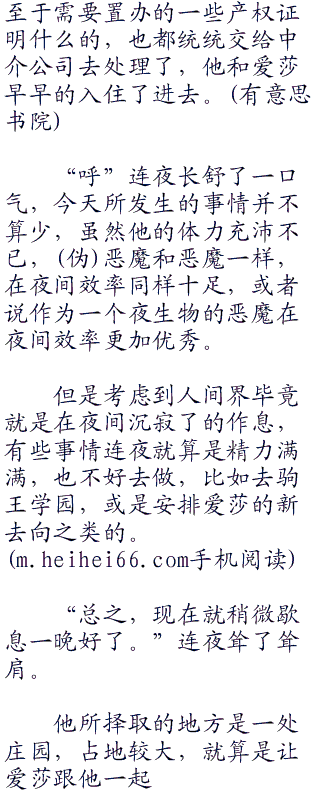 至于需要置办的一些产权证
明什么的，也都统统交给中
介公司去处理了，他和爱莎
早早的入住了进去。(有意思
书院)
“呼”连夜长舒了一口
气，今天所发生的事情并不
算少，虽然他的体力充沛不
已，(伪)恶魔和恶魔一样，
在夜间效率同样十足，或者
说作为一个夜生物的恶魔在
夜间效率更加优秀。
但是考虑到人间界毕竟
就是在夜间沉寂了的作息，
有些事情连夜就算是精力满
满，也不好去做，比如去驹
王学园，或是安排爱莎的新
去向之类的。
(m.heihei66.com手机阅读)
“总之，现在就稍微歇
息一晚好了。”连夜耸了耸
肩。
他所择取的地方是一处
庄园，占地较大，就算是让
爱莎跟他一起